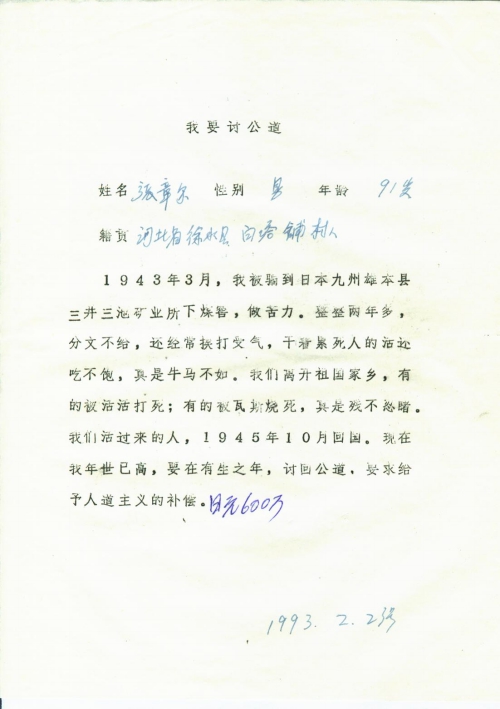 我要讨公道
姓名 张章尔 性别 男 年龄 91岁
籍贯 河北省徐水县 白塔铺村人
1943年3月，我被骗到日本九州雄本县
三井三池矿业所下煤窑，做苦力。整整两年多，
分文不给，还经常挨打受气，干着累死人的活还
吃不饱，真是牛马不如。我们离开祖国家乡，有
的被活活打死；有的被瓦斯烧死，真是残不忍睹。
我们活过来的人，1945年10月回国。现在
我年世已高，要在有生之年，讨回公道，要求给
予人道主义的补偿。日元600万
1993. 2. 2号